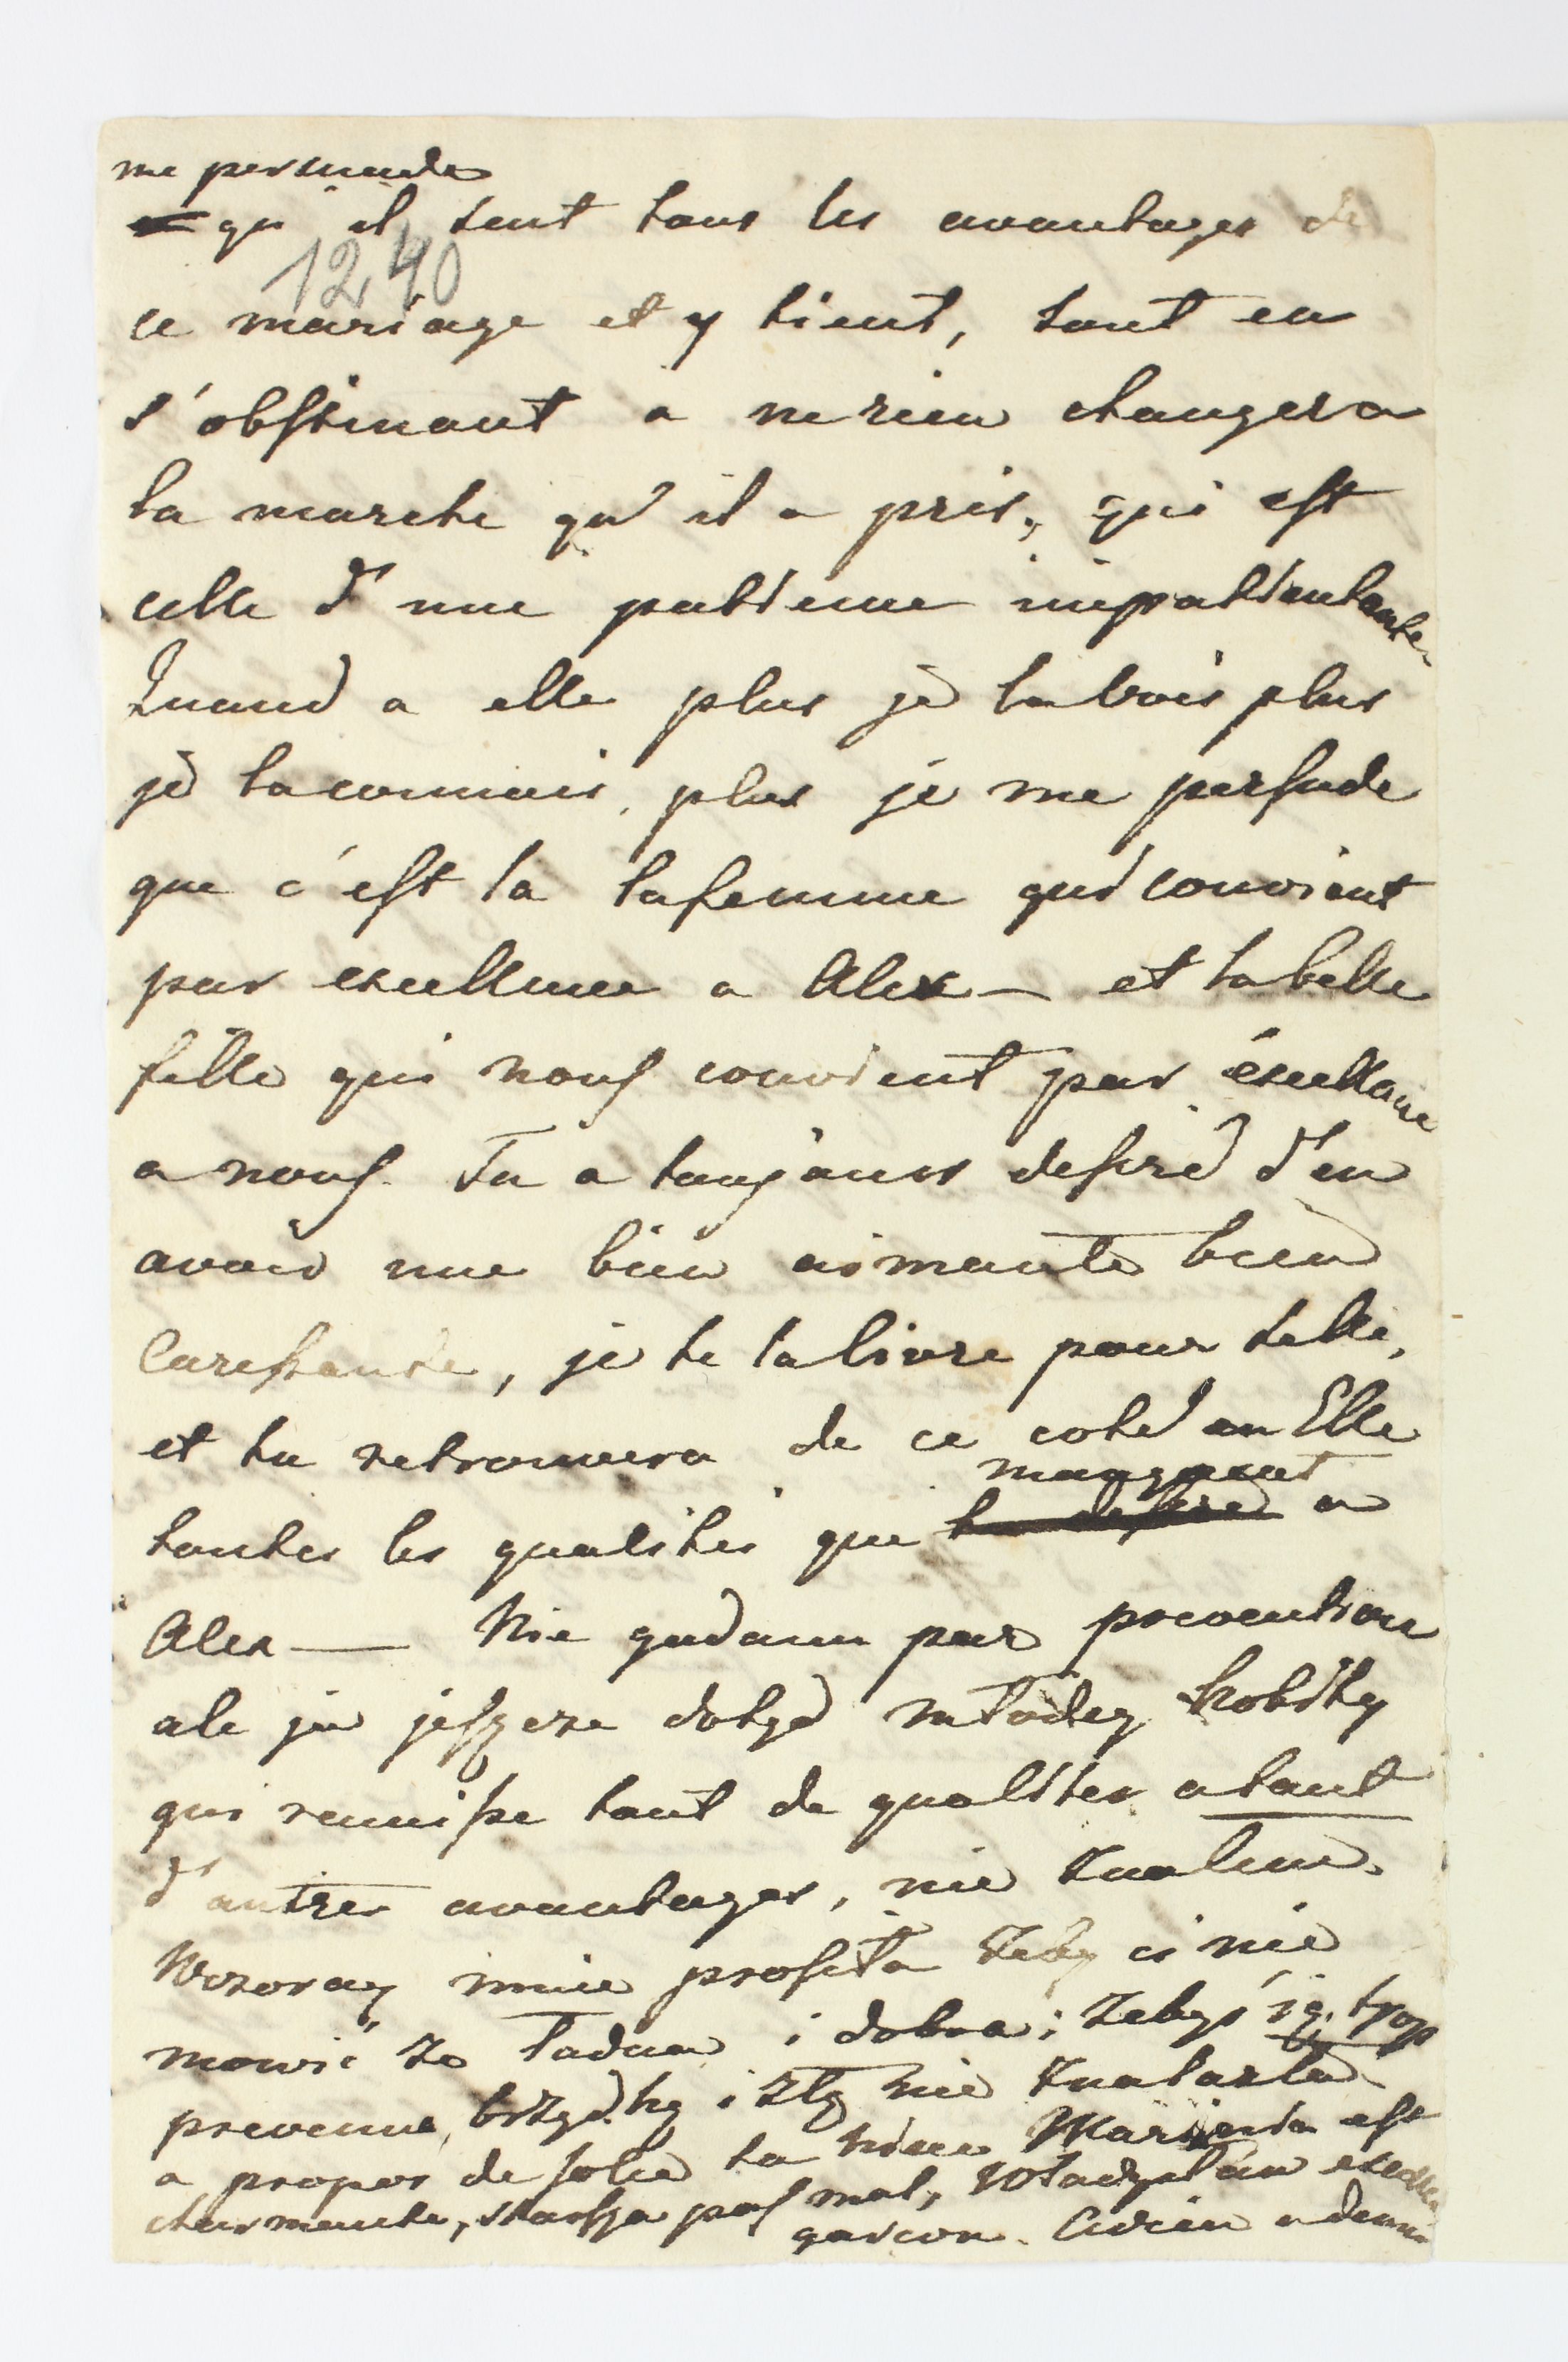 me persuade
qu'il sent tous les avantages de
1240
ce mariage et y tient, tout en
s'obstinant a ne rien changer a
la marche qu'il a pris, qui est
celle d'une patience impatientante
Quand a elle plus je la vois plus
je la connais, plus je me persuade
que c'est la la femme qui convient
par excellence a Alex — et la belle
fille qui nous convient par éxcellance
a nous. Tu a toujours desiré d'en
avoir une bien aimante bien
Caressante, je te la livre pour telle,
et tu retrouvera de ce coté en Elle
manquent
toutes les qualités que tu desire a
Alex — Nie gadam par prevention
ale ja jeszcze dotąd młodey kobity
qui reunisse tant de qualites a tant
d'autres avantages, nie znałem.
Wczoray mnie prosiła żeby ci nie
mowić że ładna i dobra; żebyś ją trop
prevenue, brzydką i złą nie znalazła
a propos de jolie la Marienia est
charmante, starsza pas mal, Władysław
garcon.